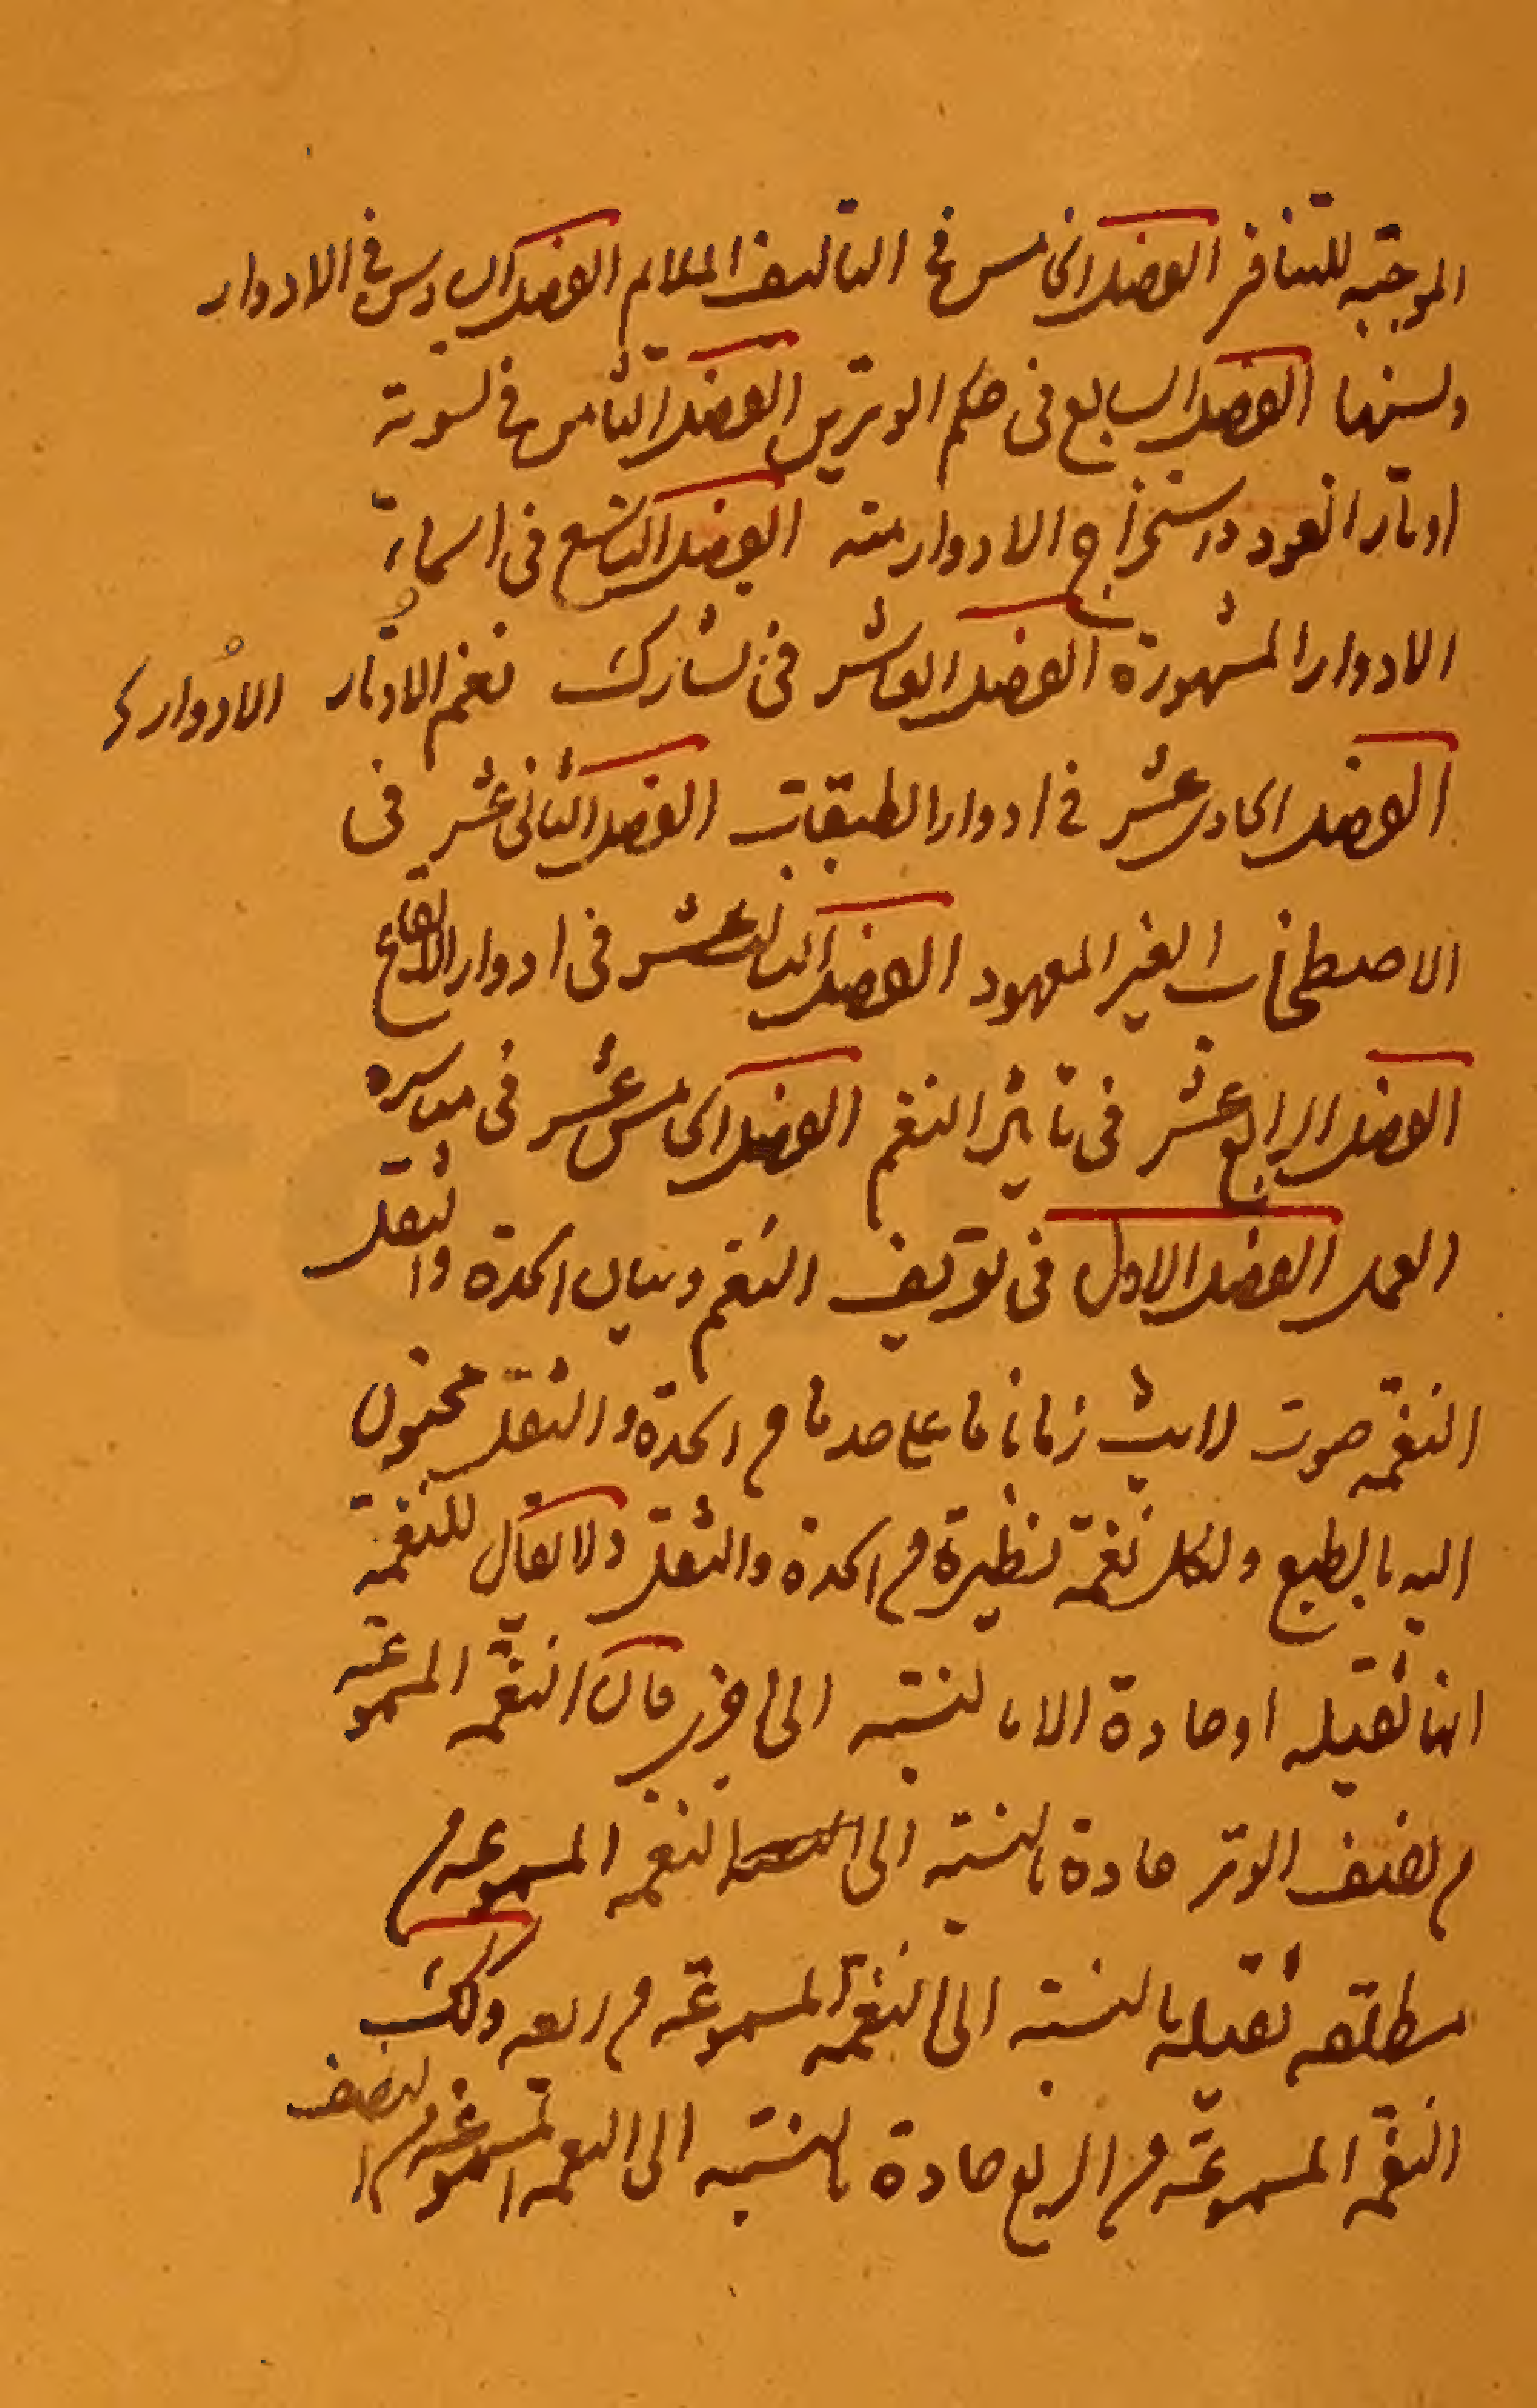 الموجبه للتنافر الفصل الخامس في التاليف الملائم الفصل السادس في الادوار
ونسبها الفصل السابع في حكم الوترين الفصل الثامن في تسوية
اوتار العود واستخراج الادوار منه الفصل التاسع في اسماء
الادوار المشهورة الفصل العاشر في تشارك نغم الاوتار الادوار
الفصل الحادى عشر في ادوار الطبقات الفصل الثاني عشر في
الاصطخاب الغير المعهود الفصل الثالث عشر في ادوار الايقاع
الفصل الرابع عشر في تاثير النغم الفصل الخامس عشر في مباشرة
العمل الفصل الاول في تعريف النغم وبيان الحدة والثقل
النغمه صوت لابث زمانا ما على حد ما من الحدة والثقل محنون
اليه بالطبع ولكل نغمة نظيرة من الحدة والثقل ولا يقال للنغمة
انها ثقيله او حادة الا بالنسبه الى اخرى فان النغمه المسموعة
من نصف الوتر حادة بالنسبه الى النغمه المسموعه من
مطلقه ثقيله بالنسبة الى النغمة المسموعه من ربعه وكذلك
النغمه المسموعة من الربع حادة بالنسبه الى النغمه المسموعة من النصف